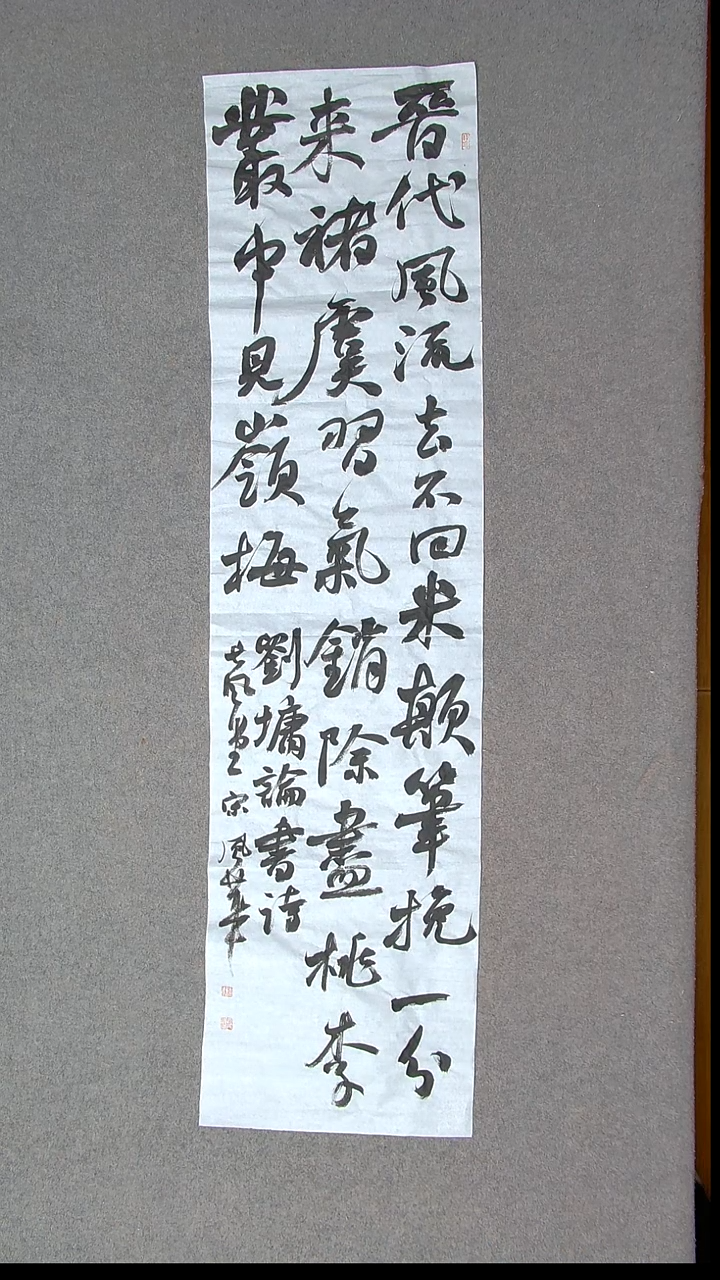 晉代風流去不回米顛筆挽一分
来褚虞習氣銷除盡桃李
叢中見嶺梅
劉墉論書詩
宗風華